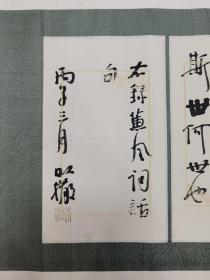 斯世何世也
右録蕙风词話
句
丙子三月